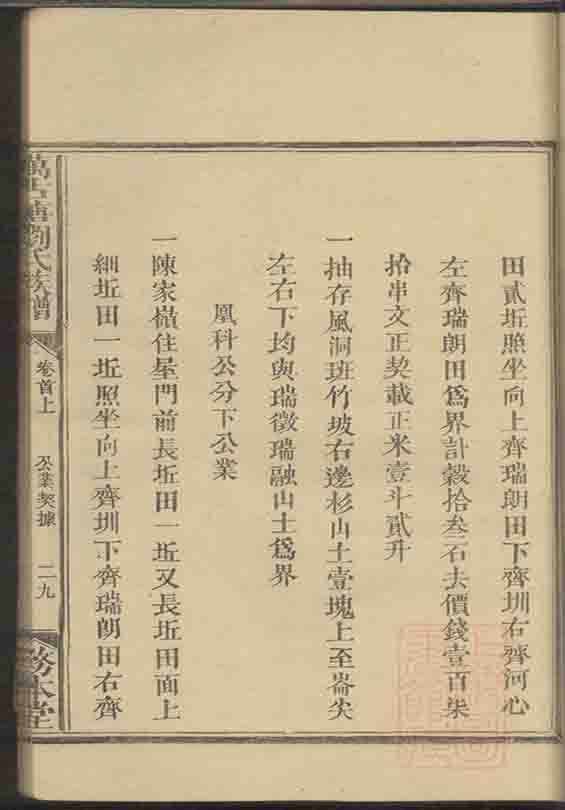 田貳坵照坐向上齊瑞朗田下齊圳右齊河心
左齊瑞朗田爲界計穀拾叁石去價錢壹百柒
拾串文正契載正米壹斗貳升
一抽存風洞班竹坡右邊杉山土壹塊上至崙尖
左右下均與瑞徵瑞融山土爲界
凰科公分下公業
一陳家嶺住屋門前長坵田一坵又長坵田面上
細坵田一坵照坐向上齊圳下齊瑞朗田右齊
劉氏族譜
卷首上
公業契據
二九
務本堂